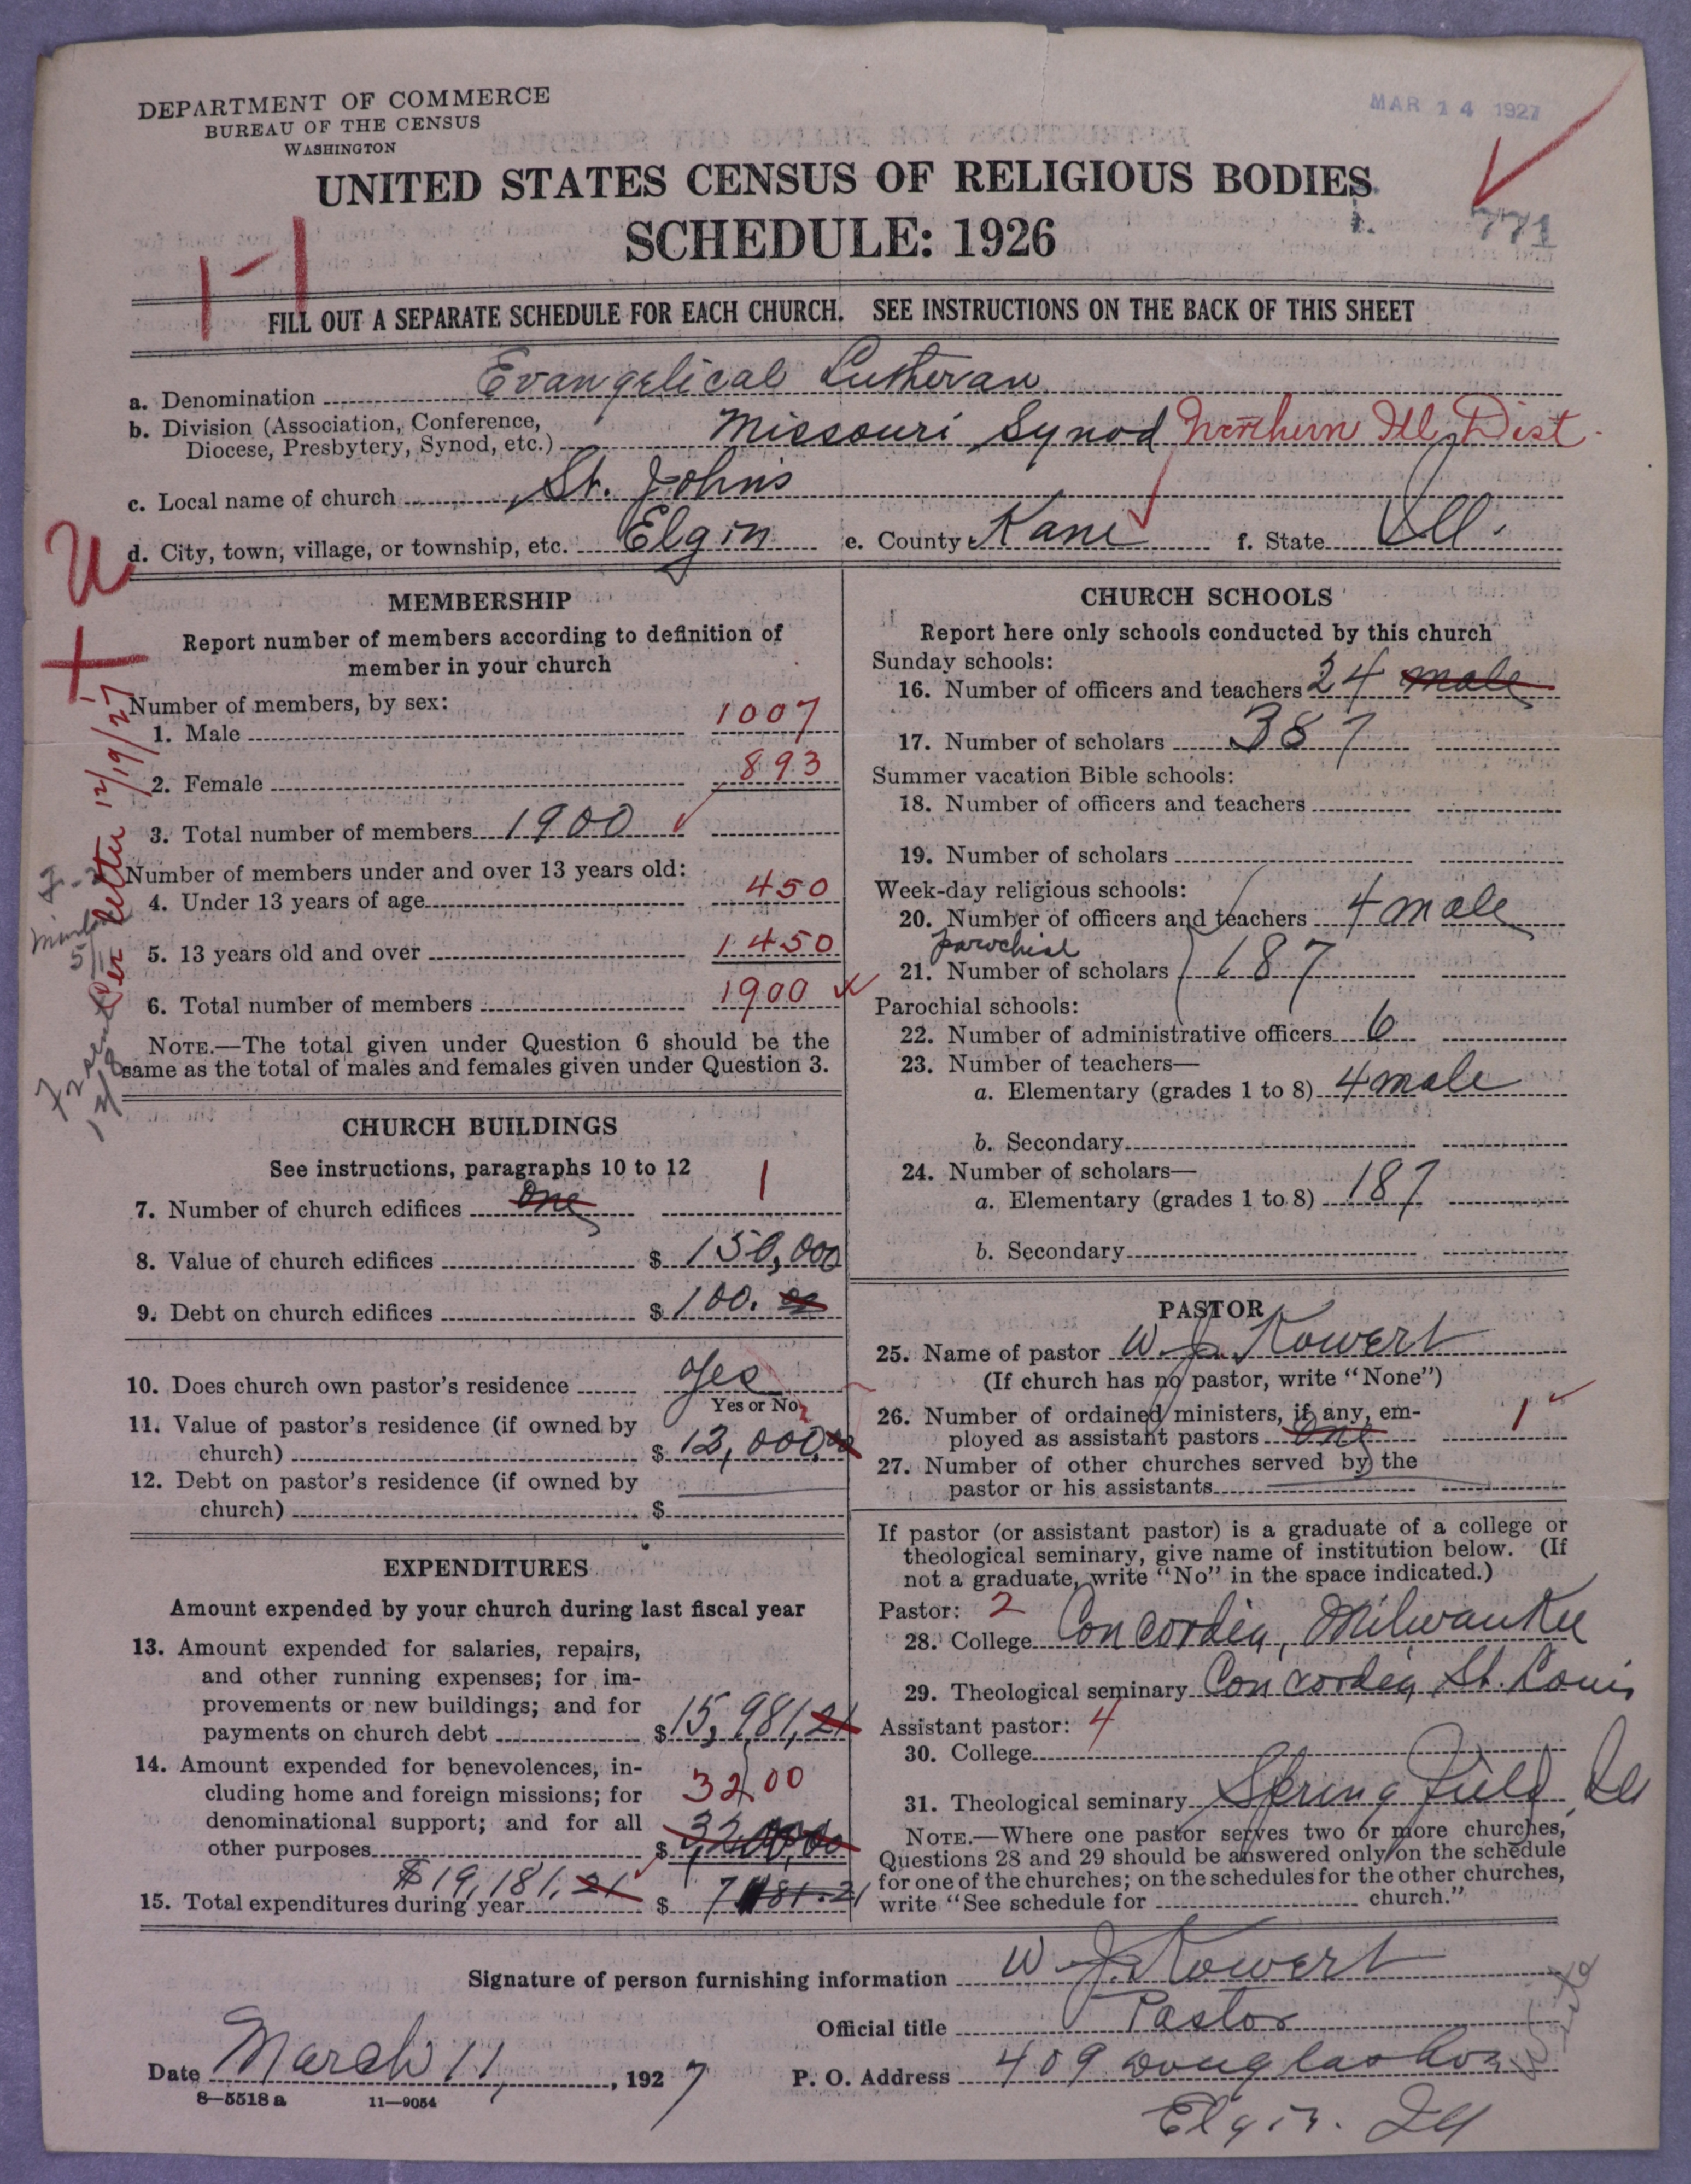 DEPARTMENT OF COMMERCE
BUREAU OF THE CENSUS
WASHINGTON
MAR 14 1927
UNITED STATES CENSUS OF RELIGIOUS BODIES
SCHEDULE: 1926
771
1-1
FILL OUT A SEPARATE SCHEDULE FOR EACH CHURCH. SEE INSTRUCTIONS ON THE BACK OF THIS SHEET
a. Denomination Evangelical Lutheran
b. Division (Association, Conference, Diocese, Presbytery, Synod, etc.) Missouri Synod Northern Ill. Dist.
c. Local name of church St. John's
d. City, town, village, or township, etc. Elgin e. County Kane f. State Ill.
U
Per letter 12/19/27
MEMBERSHIP
Report number of members according to definition of
member in your church
Number of members, by sex:
1. Male 1007
2. Female 893
3. Total number of members 1900
Number of members under and over 13 years old:
4. Under 13 years of age 450
5. 13 years old and over 1450
6. Total number of members 1900
NOTE.—The total given under Question 6 should be the
same as the total of males and females given under Question 3.
CHURCH BUILDINGS
See instructions, paragraphs 10 to 12
7. Number of church edifices one 1
8. Value of church edifices $ 150,000
9. Debt on church edifices $ 100. 00
10. Does church own pastor's residence Yes
Yes or No
11. Value of pastor's residence (if owned by
church) $ 12,000.00
12. Debt on pastor's residence (if owned by
church) $
EXPENDITURES
Amount expended by your church during last fiscal year
13. Amount expended for salaries, repairs,
and other running expenses; for im-
provements or new buildings; and for
payments on church debt $ 15,981.21
14. Amount expended for benevolences, in-
cluding home and foreign missions; for 3200
denominational support; and for all
other purposes $ 3,200.00
$19,181.21
15. Total expenditures during year $
CHURCH SCHOOLS
Report here only schools conducted by this church
Sunday schools:
16. Number of officers and teachers 24 male
17. Number of scholars 387
Summer vacation Bible schools:
18. Number of officers and teachers
19. Number of scholars
Week-day religious schools:
20. Number of officers and teachers 4 male
parochial
21. Number of scholars 187
Parochial schools:
22. Number of administrative officers 6
23. Number of teachers—
a. Elementary (grades 1 to 8) 4 male
b. Secondary
24. Number of scholars—
a. Elementary (grades 1 to 8) 187
b. Secondary
PASTOR
25. Name of pastor W. J. Kowert
(If church has no pastor, write "None")
26. Number of ordained ministers, if any, em-
ployed as assistant pastors one 1
27. Number of other churches served by the
pastor or his assistants
If pastor (or assistant pastor) is a graduate of a college or
theological seminary, give name of institution below. (If
not a graduate, write "No" in the space indicated.)
Pastor: 2
28. College Concordia, Milwaukee
29. Theological seminary Concordia St. Louis
Assistant pastor: 4
30. College
31. Theological seminary Springfield, Ill
NOTE.—Where one pastor serves two or more churches,
Questions 28 and 29 should be answered only on the schedule
for one of the churches; on the schedules for the other churches,
write "See schedule for church."
Signature of person furnishing information W. J. Kowert
Official title Pastor
Date March 11, 1927 P. O. Address 409 Douglas Ave
Elgin. Ill
8—5518 a 11—9054